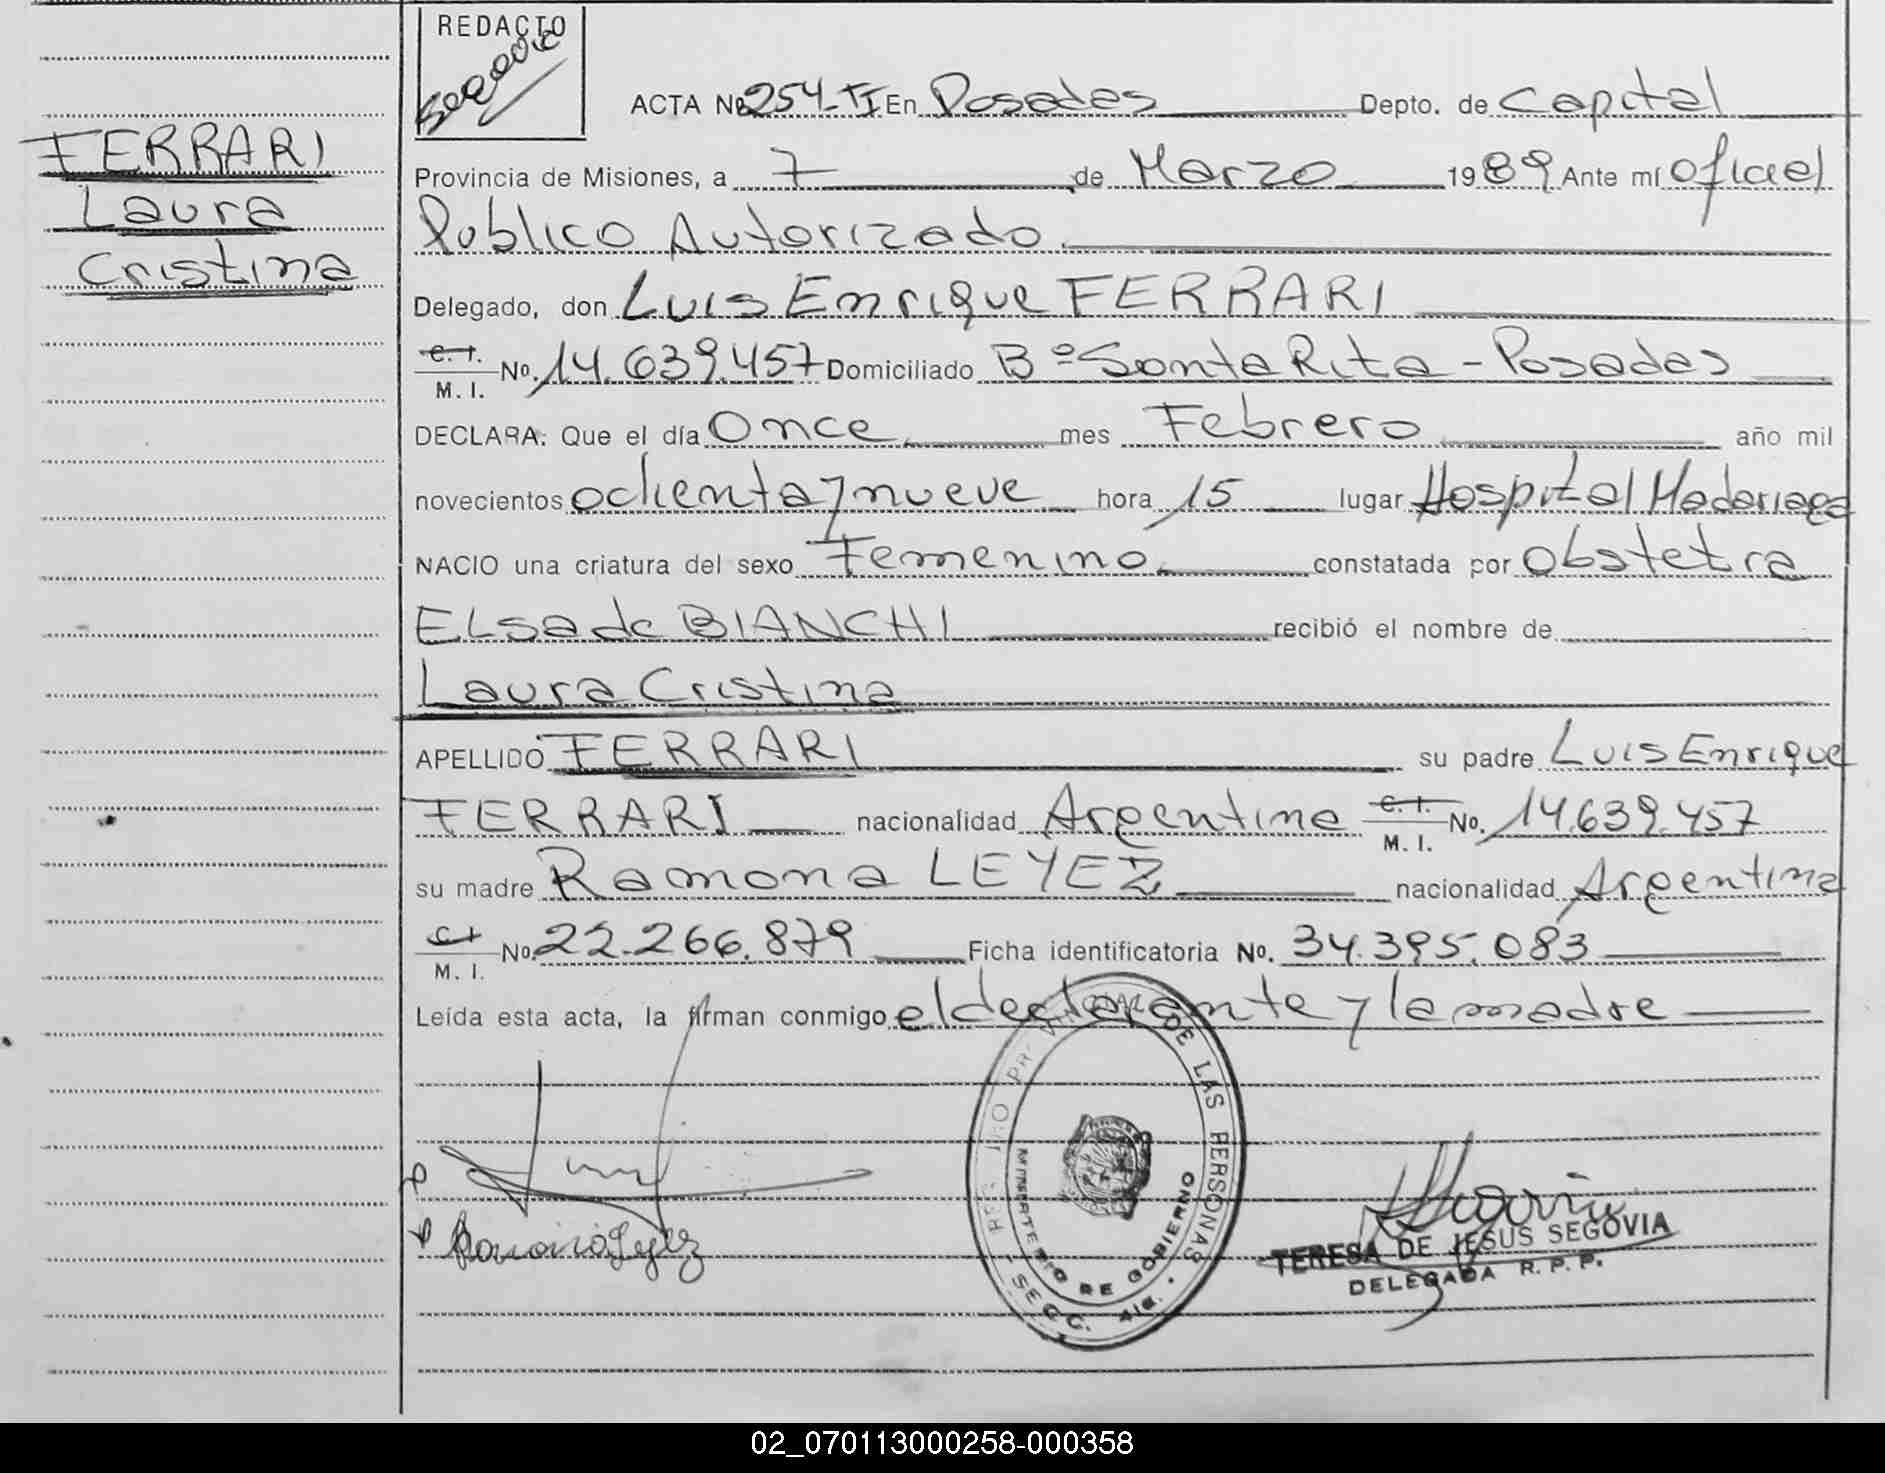 REDACTO
FERRARI
Laura
Cristina
ACTA No 254-TI En Posadas Depto. de Capital
Provincia de Misiones, a 7 de Marzo 1989 Ante mí Oficial
Público Autorizado.
Delegado, don Luis Enrique FERRARI
C. I. / M. I. No. 14.639.457 Domiciliado Bº Santa Rita - Posadas
DECLARA: Que el día Once mes Febrero año mil
novecientos ochenta y nueve hora 15 lugar Hospital Madariaga
NACIO una criatura del sexo Femenino constatada por Obstetra
ELSA de BIANCHI recibió el nombre de
Laura Cristina
APELLIDO FERRARI su padre Luis Enrique
FERRARI nacionalidad Argentina C. I. / M. I. No. 14.639.457
su madre Ramona LEYEZ nacionalidad Argentina
C. I. / M. I. No. 22.266.879 Ficha identificatoria No. 34.395.083
Leída esta acta, la firman conmigo el declarante y la madre
Ramona Leyez
REGISTRO PROVINCIAL DE LAS PERSONAS
MINISTERIO DE GOBIERNO
Segovia
TERESA DE JESUS SEGOVIA
DELEGADA R. P. P.
02_070113000258-000358